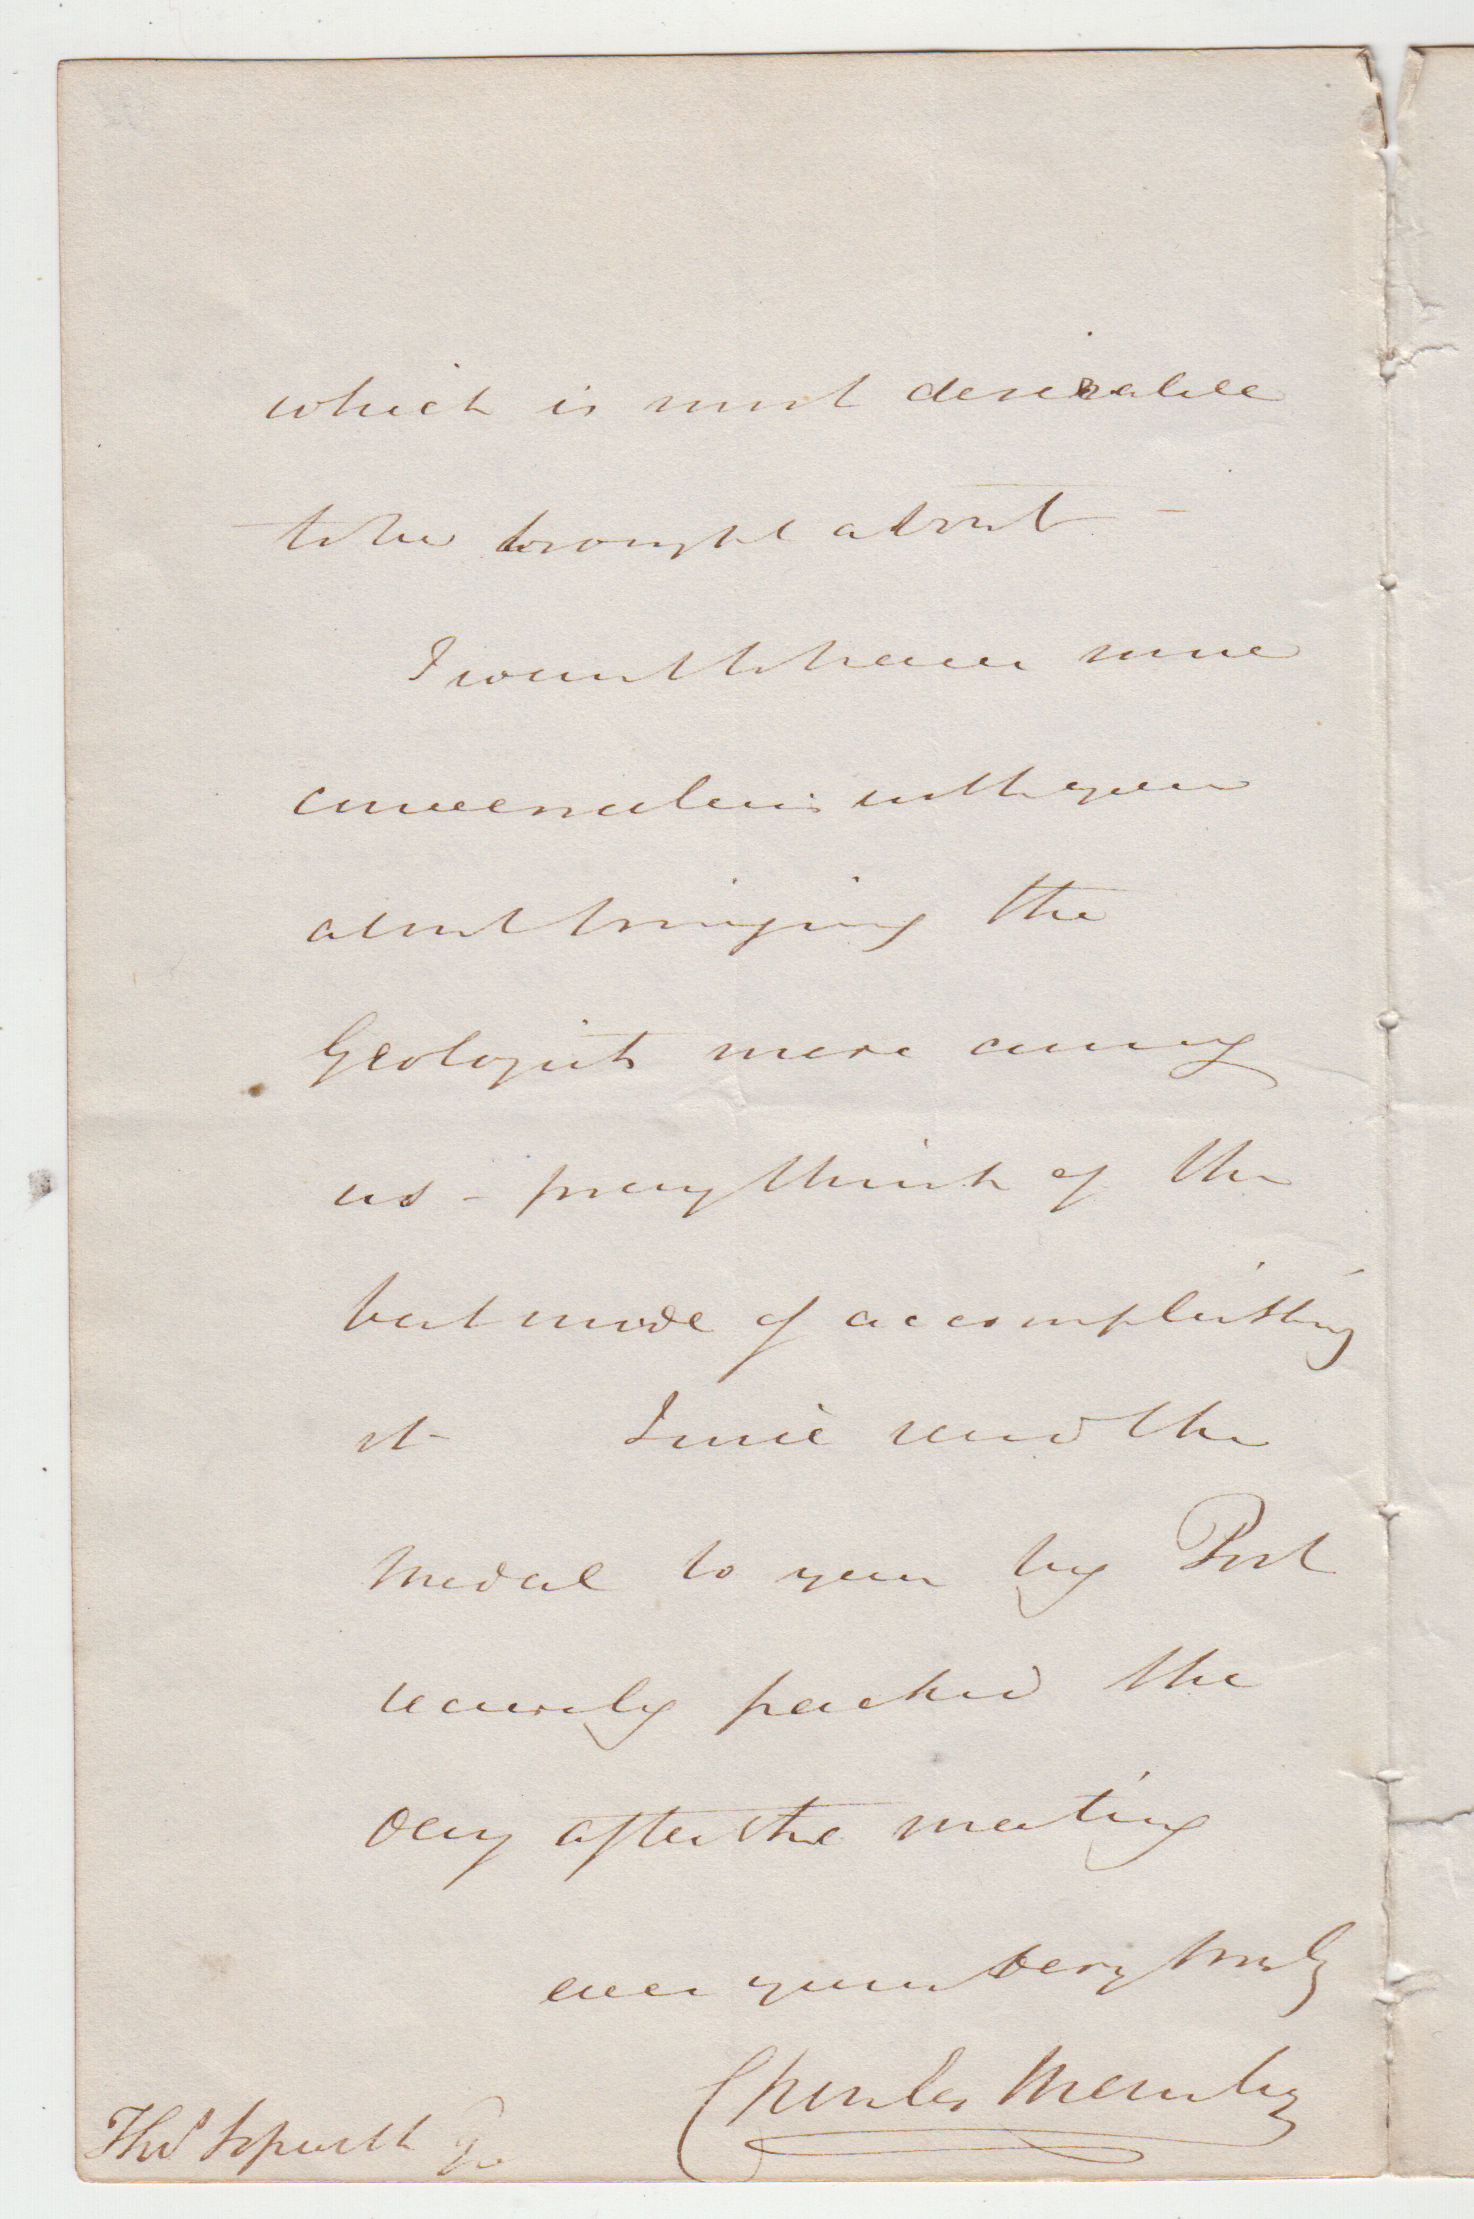 which is most desirable
to be brought about -
I want to have some
conversation with you
about bringing the
Geologists more among
us - pray think of the
best mode of accomplishing
it - I will send the
Medal to you by Post
securely packed the
day after the meeting
ever yours very truly
Charles Manby
Thos Sopwith Esq